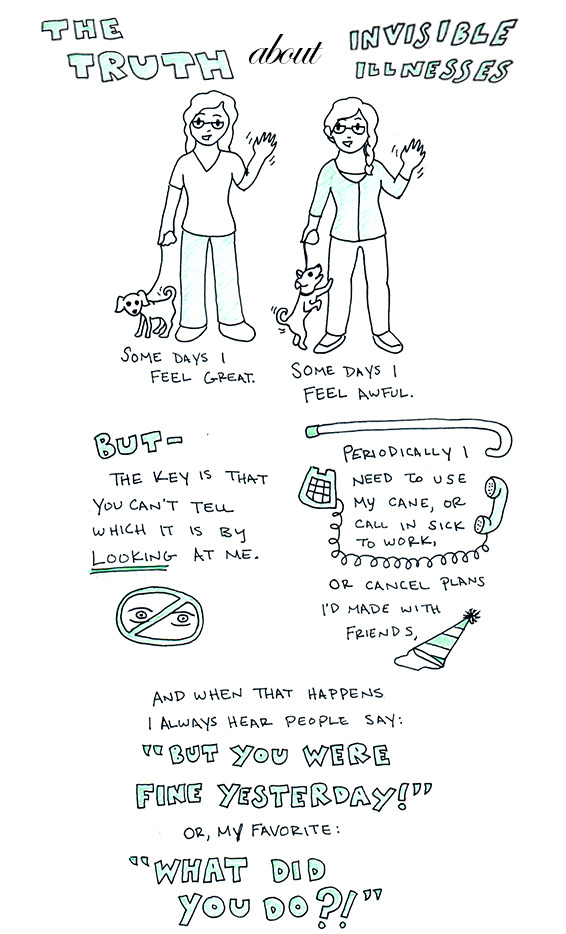 THE TRUTH about INVISIBLE ILLNESSES
SOME DAYS I
FEEL GREAT.
SOME DAYS I
FEEL AWFUL.
BUT-
THE KEY IS THAT
YOU CAN'T TELL
WHICH IT IS BY
LOOKING AT ME.
PERIODICALLY I
NEED TO USE
MY CANE, OR
CALL IN SICK
TO WORK,
OR CANCEL PLANS
I'D MADE WITH
FRIENDS,
AND WHEN THAT HAPPENS
I ALWAYS HEAR PEOPLE SAY:
"BUT YOU WERE
FINE YESTERDAY!"
OR, MY FAVORITE:
"WHAT DID
YOU DO?!"